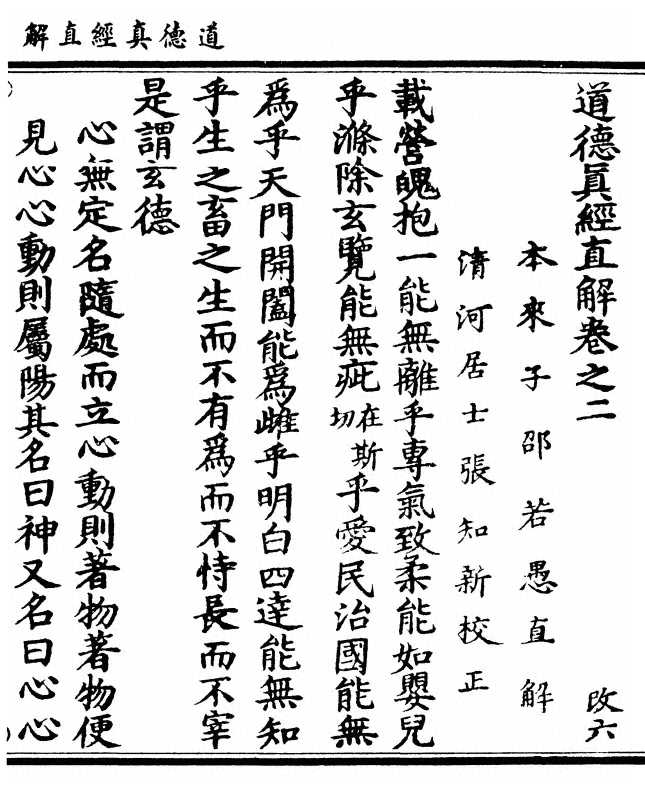 道德真經直解
道德眞經直解卷之二
改六
本來子邵若愚直解
清河居士張知新校正
載營魄抱一能無離乎專氣致柔能如嬰兒
乎滌除玄覽能無疵在斯切乎愛民治國能無
爲乎天門開闔能爲雌乎明白四達能無知
乎生之畜之生而不有爲而不恃長而不宰
是謂玄德
心無定名隨處而立心動則著物著物便
見心心動則屬陽其名曰神又名曰心心